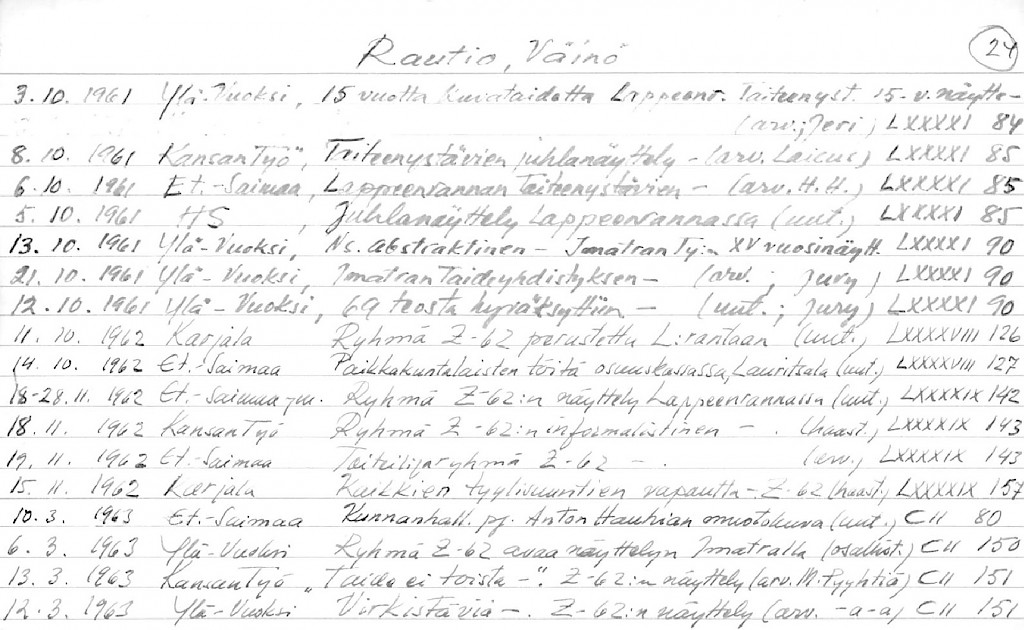 Rautio, Väinö
24
3.10. 1961 Ylä-Vuoksi, 15 vuotta Kuvataidetta Lappeenr. Taiteenyst. 15-v. näytte-
(arv.; Jeri) LXXXXI 84
8.10. 1961 KansanTyö, Taiteenystävien juhlanäyttely - (arv. Laicus) LXXXXI 85
6.10. 1961 Et.-Saimaa, Lappeenrannan Taiteenystävien - (arv. H.H.) LXXXXI 85
5.10. 1961 HS, Juhlanäyttely Lappeenrannassa (uut.) LXXXXI 85
13.10. 1961 Ylä-Vuoksi, Ns. abstraktinen - Imatran Ty:n XV vuosinäytt. LXXXXI 90
21.10. 1961 Ylä-Vuoksi, Imatran Taideyhdistyksen - (arv.; jury) LXXXXI 90
12.10. 1961 Ylä-Vuoksi, 69 teosta hyväksyttiin - (uut.; jury) LXXXXI 90
11.10. 1962 Karjala Ryhmä Z-62 perustettu L:rantaan (uut.) LXXXXVIII 126
14.10. 1962 Et.-Saimaa Paikkakuntalaisten töitä osuuskassassa, Lauritsala (uut.) LXXXXVIII 127
18-28.11. 1962 Et.-Saimaa Ryhmä Z-62:n näyttely Lappeenrannassa (uut.) LXXXXIX 142
18.11. 1962 KansanTyö Ryhmä Z-62:n informalistinen - . (haast.) LXXXXIX 143
19.11. 1962 Et.-Saimaa Taiteilijaryhmä Z-62 - . (arv.) LXXXXIX 143
15.11. 1962 Karjala Kaikkien tyylisuuntien vapautta -. Z-62 (haast.) LXXXXIX 157
10.3. 1963 Et.-Saimaa Kunnanhall. pj. Anton Hauhian muotokuva (uut.) CII 80
6.3. 1963 Ylä-Vuoksi Ryhmä Z-62 avaa näyttelyn Imatralla (osallist.) CII 150
13.3. 1963 KansanTyö "Taide ei toista -". Z-62:n näyttely (arv. M. Pyyhtiä) CII 151
12.3. 1963 Ylä-Vuoksi Virkistäviä -. Z-62:n näyttely (arv. -a-a) CII 151